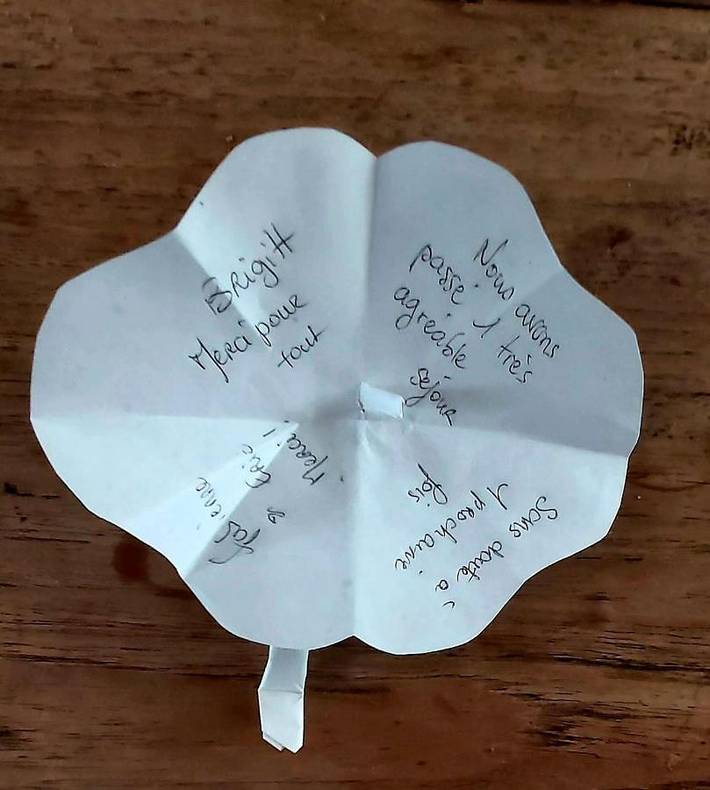 Brigitt
Merci pour
tout
Nous avons
passé 1 très
agréable
séjour
Sans doute à
1 prochaine
fois
Merci!
Fabienne
& Eric